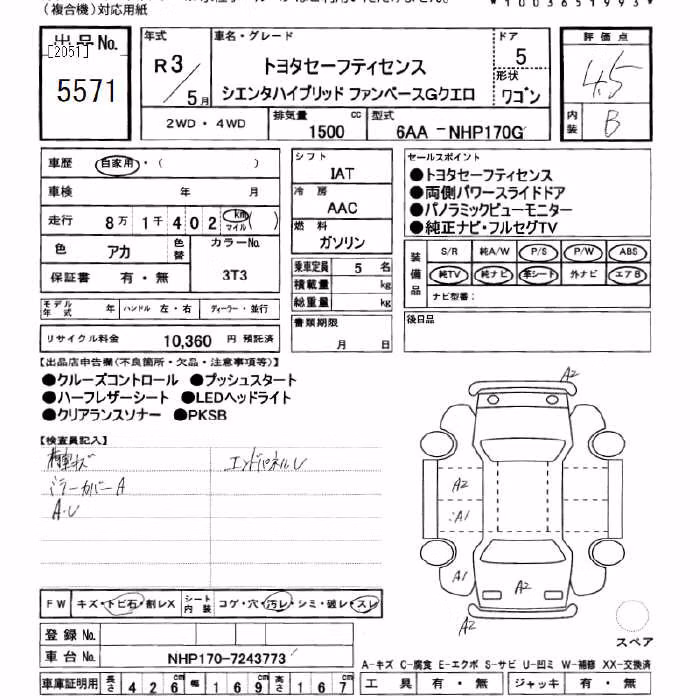 (複合機)対応用紙
*1003651993*
出品No.
[2051]
5571
年式
R3/5月
車名・グレード
トヨタセーフティセンス
シエンタハイブリッド ファンベースGクエロ
ドア
5
形状
ワゴン
評価点
4.5
内装
B
2WD・4WD
排気量
1500 cc
型式
6AA-NHP170G
車歴
自家用・( )
車検
年 月
走行
8万1千402 km マイル ( )
色
アカ
色替
カラーNo.
3T3
保証書
有・無
モデル年式
年
ハンドル 左・右
ディーラー・並行
リサイクル料金
10,360 円 預託済
シフト
IAT
冷房
AAC
燃料
ガソリン
乗車定員 5 名
積載量 kg
総重量 kg
書類期限
月 日
セールスポイント
●トヨタセーフティセンス
●両側パワースライドドア
●パノラミックビューモニター
●純正ナビ・フルセグTV
装備品
S/R 純A/W P/S P/W ABS
純TV 純ナビ 革シート 外ナビ エアB
ナビ型番:
後日品
【出品店申告欄(不良箇所・欠品・注意事項等)】
●クルーズコントロール ●プッシュスタート
●ハーフレザーシート ●LEDヘッドライト
●クリアランスソナー ●PKSB
【検査員記入】
キズ
エンドパネルU
ミラーカバーA
A・U
A2
A2
A1
A1
A2
A2
FW
キズ・トビ石・割レX
シート内装
コゲ・穴・汚レ・シミ・破レ・スレ
登録No.
車台No.
NHP170-7243773
スペア
A-キズ C-腐食 E-エクボ S-サビ U-凹ミ W-補修 XX-交換済
車庫証明用 長さ 426 幅 169 高さ 167
工具 有・無
ジャッキ 有・無